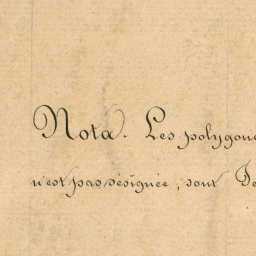 Nota. Les polygon
n'est pas désignée, sont